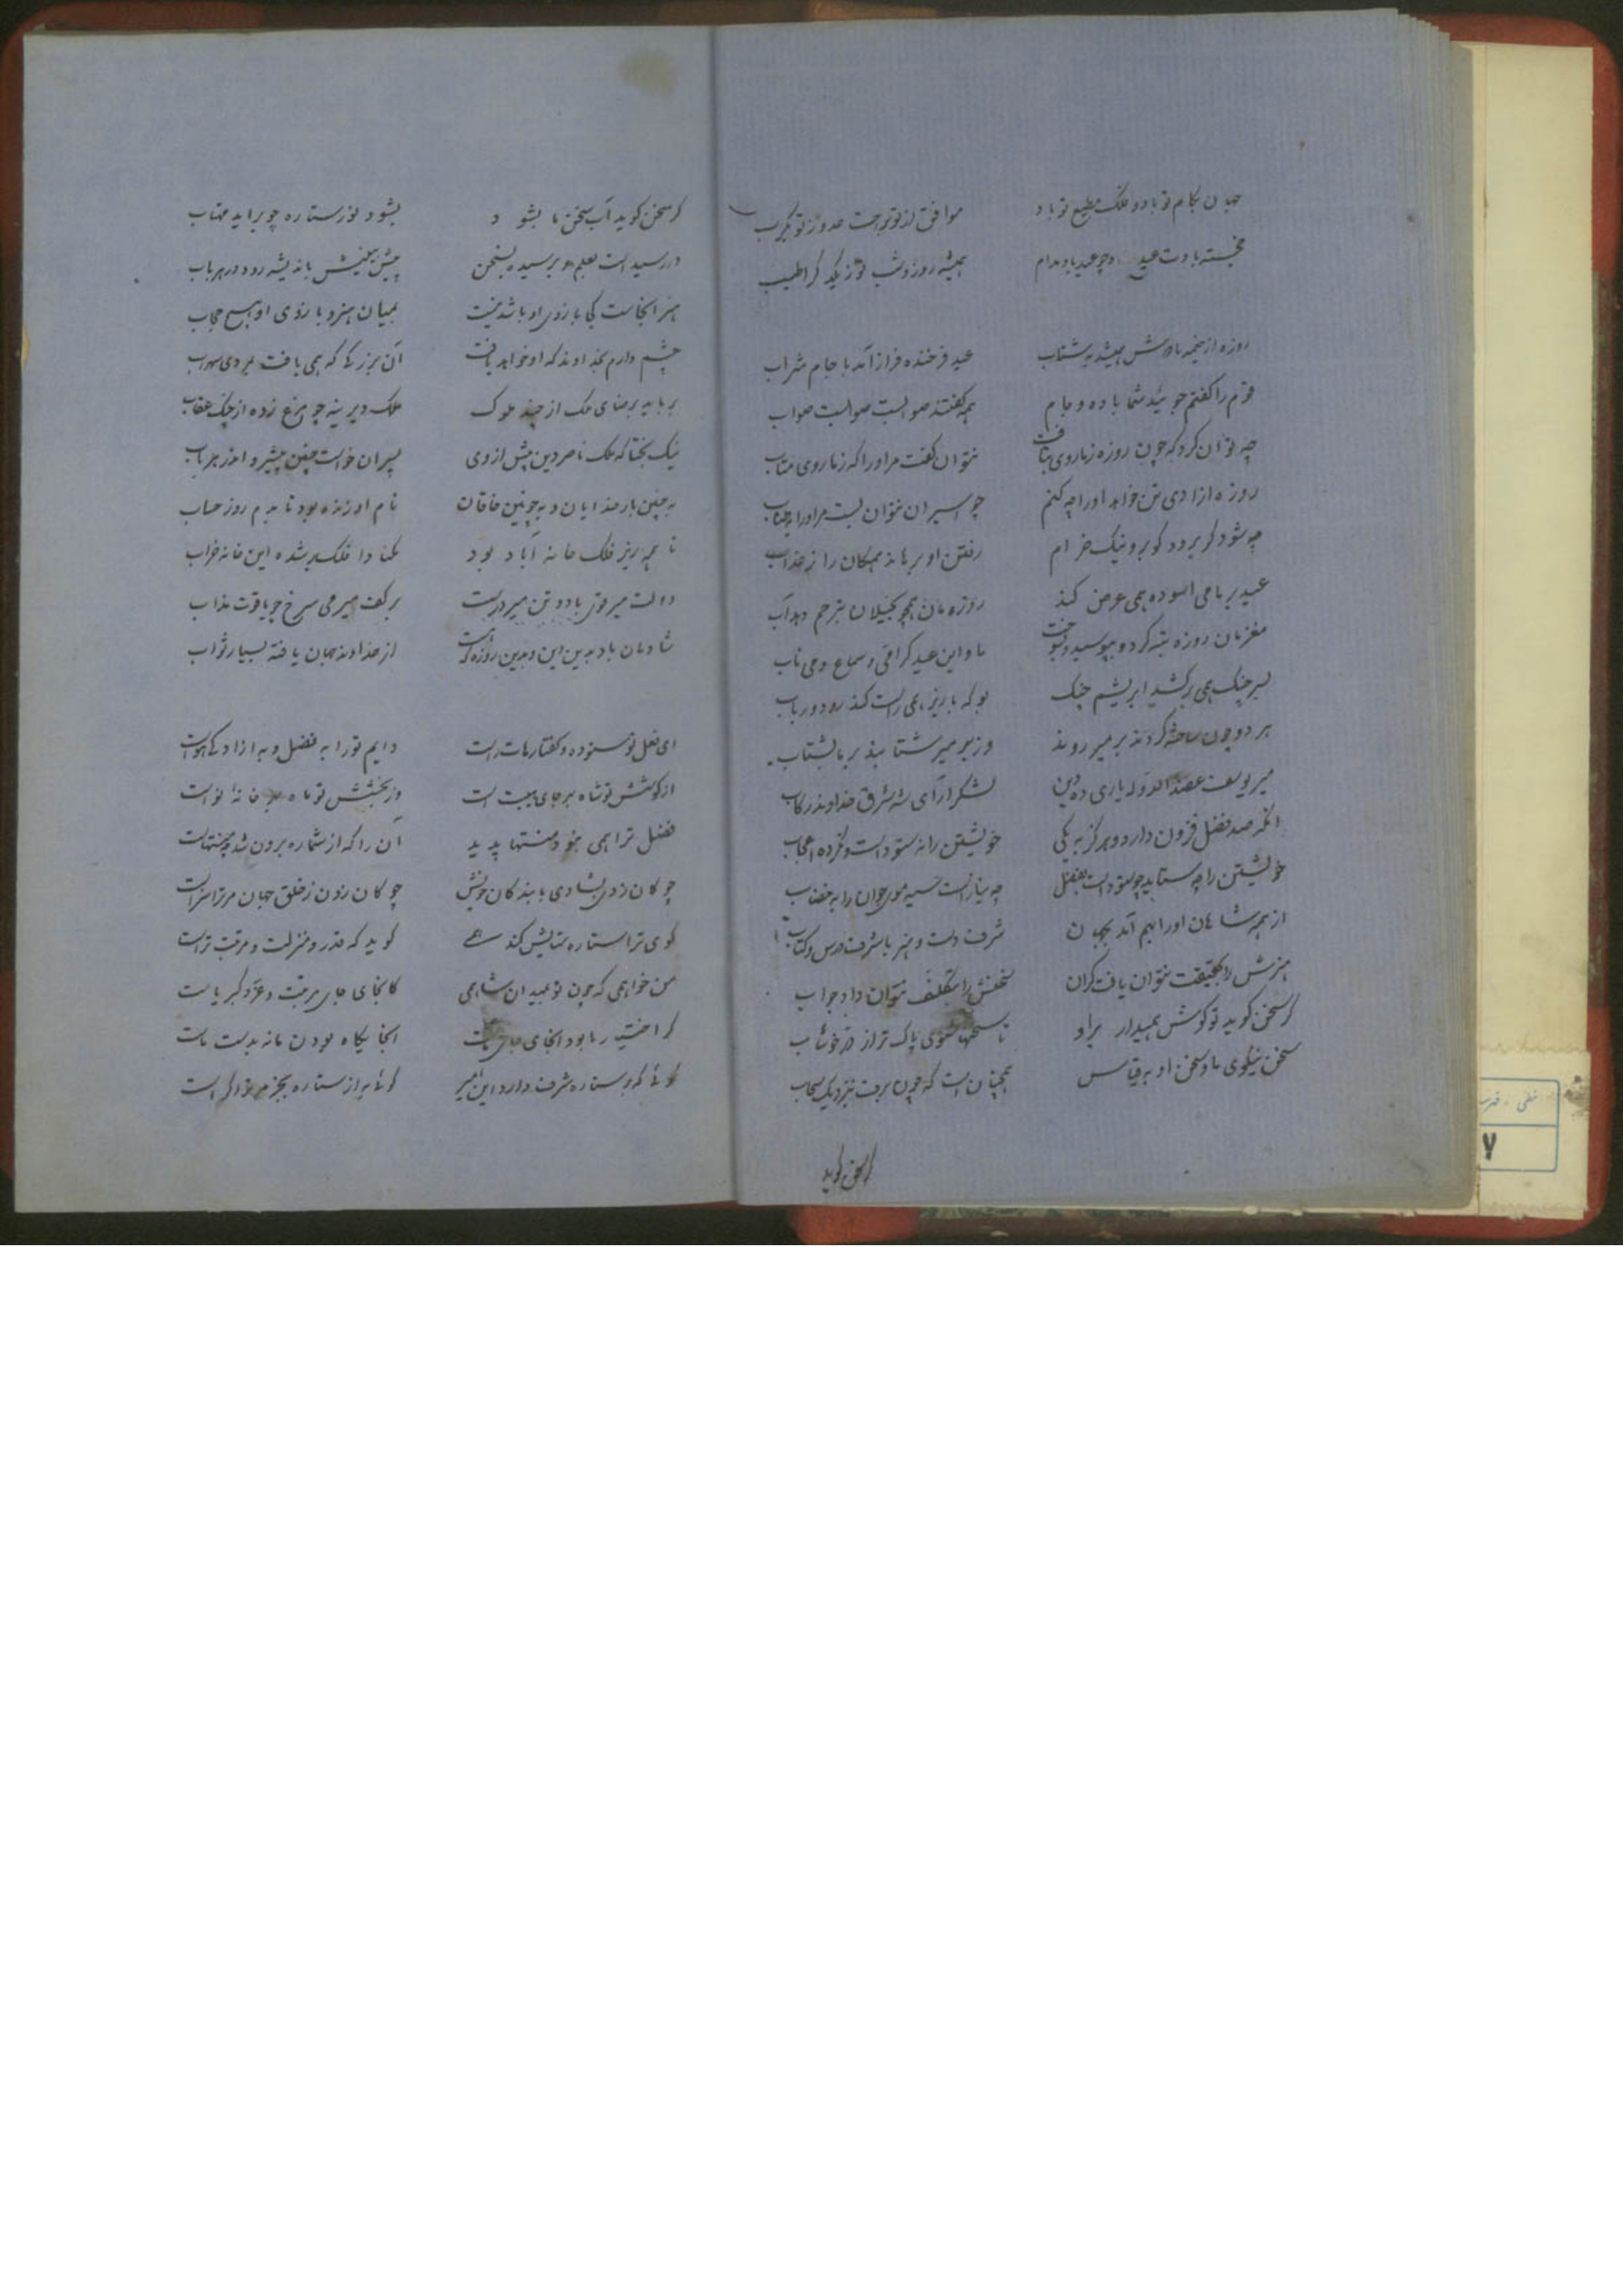 جهان بکام تو باد و فلک مطیع تو باد موافق از تو براحت عدو ز تو بکرب
خجسته بادت عید و چو عید باد مدام همیشه روز و شب تو ز یکدکر اطیب
روزه از خیمه ما دوش همیشد بشتاب عید فرخنده فراز آمد با جام شراب
قوم را کفتم چونید شما باده و جام همه کفتند صوابست صوابست صواب
چه توان کرد که چون روزه ز ما روی بتافت نتوان کفت مر او را که ز ما روی متاب
روزه ازادی تن خواهد اورا چه کنم چو اسیران نتوان بست مر اورا بطناب
چه شود کر برود کو برو نیک خرام رفتن او برهاند همکان را ز عذاب
عید بر ما می اسوده همی عرض کند روزه مان همچو بخیلان بترحم دهد آب
مغزمان روزه تبه کرد و بپوسید و بسوخت ما و این عید کرامی و سماع و می ناب
بسر چنک همی برکشد ابریشم چنک بو که با زیر همی راست کند رود و رباب
هر دو چون ساخته کردند بر میر روند وز بر میر شتابند بر ما بشتاب
میر یوسف عضدالدوله یاری ده دین لشکرآرای شه شرق خداوند رکاب
انکه صد فضل فزون دارد و هرکز به یکی خویشتن را نه ستوداست و نکرده اعجاب
خویشتن را چه ستاید چو ستوداست بفضل چه نیازست سیه موی جوان را به خضاب
از همه شاهان اورا بهم آمد بجهان شرف دست و هنر با شرف درس و کتاب
هنرش را بحقیقت نتوان یافت کران سخنش را بتکلف نتوان داد جواب
کر سخن کوید تو کوش همیدار براو تا سخنها شنوی پاک تر از در خوشاب
سخن نیکوی ما و سخن او به قیاس همچنان است که چون برف بنزدیک سحاب
کر سخن کوید
کر سخن کوید آب سخن ما بشود بشود نور ستاره چو براید مهتاب
در رسیدست بعلم و برسیده بسخن پیش بینیش باندیشه رود در هر باب
هنر انجاست کجا بازوی او باشد نیست بمیان هنر و بازوی او هیچ حجاب
چشم دارم بخداوند که او خواهد یافت آن بزرکی که همی یافت بمردی سهراب
بربایند برضای ملک از چند ملوک ملک دیرینه چو مرغ زده از چنک عقاب
نیک بختا که ملک ناصر دین پیش از وی پسران خواست چنین پیشرو اندر هر باب
به چنین بار خدایان و به چونین خاقان نام او زنده بود تا بدم روز حساب
تا همه زیر فلک خانه آباد بود مکنادا فلک بد شده این خانه خراب
دولت میر قوی باد و تن میر درست بر کف میر می سرخ چو یاقوت مذاب
شادمان باد بدین این و بدین روزه که هست از خداوند جهان یافته بسیار ثواب
ای فعل تو ستوده و کفتارهات راست دایم تورا به فضل و به ازادکی هواست
از کوشش تو شاه بهر جای هیبت است وز بخشش تو ماه خانه نواست
فضل ترا همی نبود منتها پدید آن را که از شماره برون شد چه منتهاست
چوکان زدی بشادی با بندکان خویش چوکان زدن ز خلق جهان مر ترا سزاست
کوی ترا ستاره ستایش کند همی کوید که قدر و منزلت و مرتبت تراست
من خواهمی که چون تو بمیدان شاهمی کانجای جای مرتبت و عز و کبریاست
کر اختیار ما بود انجای جای ماست انجایکاه بودن ما نه بدست ماست
کوئی که بر ستاره شرف دارد این امیر کوئی به از ستاره بجز میر ما کراست